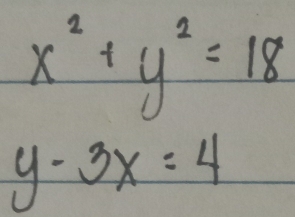 x² + y² = 18
y - 3x = 4